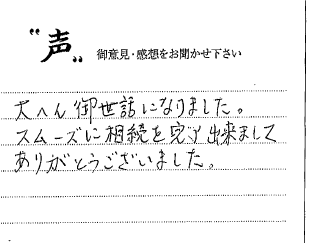 "声" 御意見・感想をお聞かせ下さい
大へん御世話になりました。
スムーズに相続を完了出来まして
ありがとうございました。